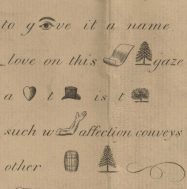 to g ve it a name
love on this gaze
a t is t
such w affection conveys
other